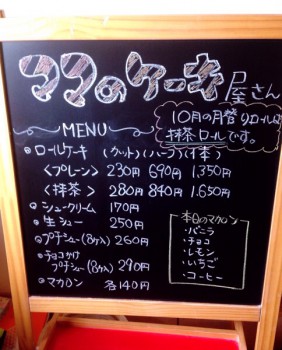 ママのケーキ屋さん
10月の月替りロールは
抹茶ロールです。
MENU
ロールケーキ (カット)(ハーフ)(1本)
<プレーン> 230円 690円 1,350円
<抹茶> 280円 840円 1,650円
シュークリーム 170円
生シュー 250円
プチシュー(8ヶ入) 260円
チョコがけ
プチシュー(8ヶ入) 290円
マカロン 各140円
本日のマカロン
・バニラ
・チョコ
・レモン
・いちご
・コーヒー